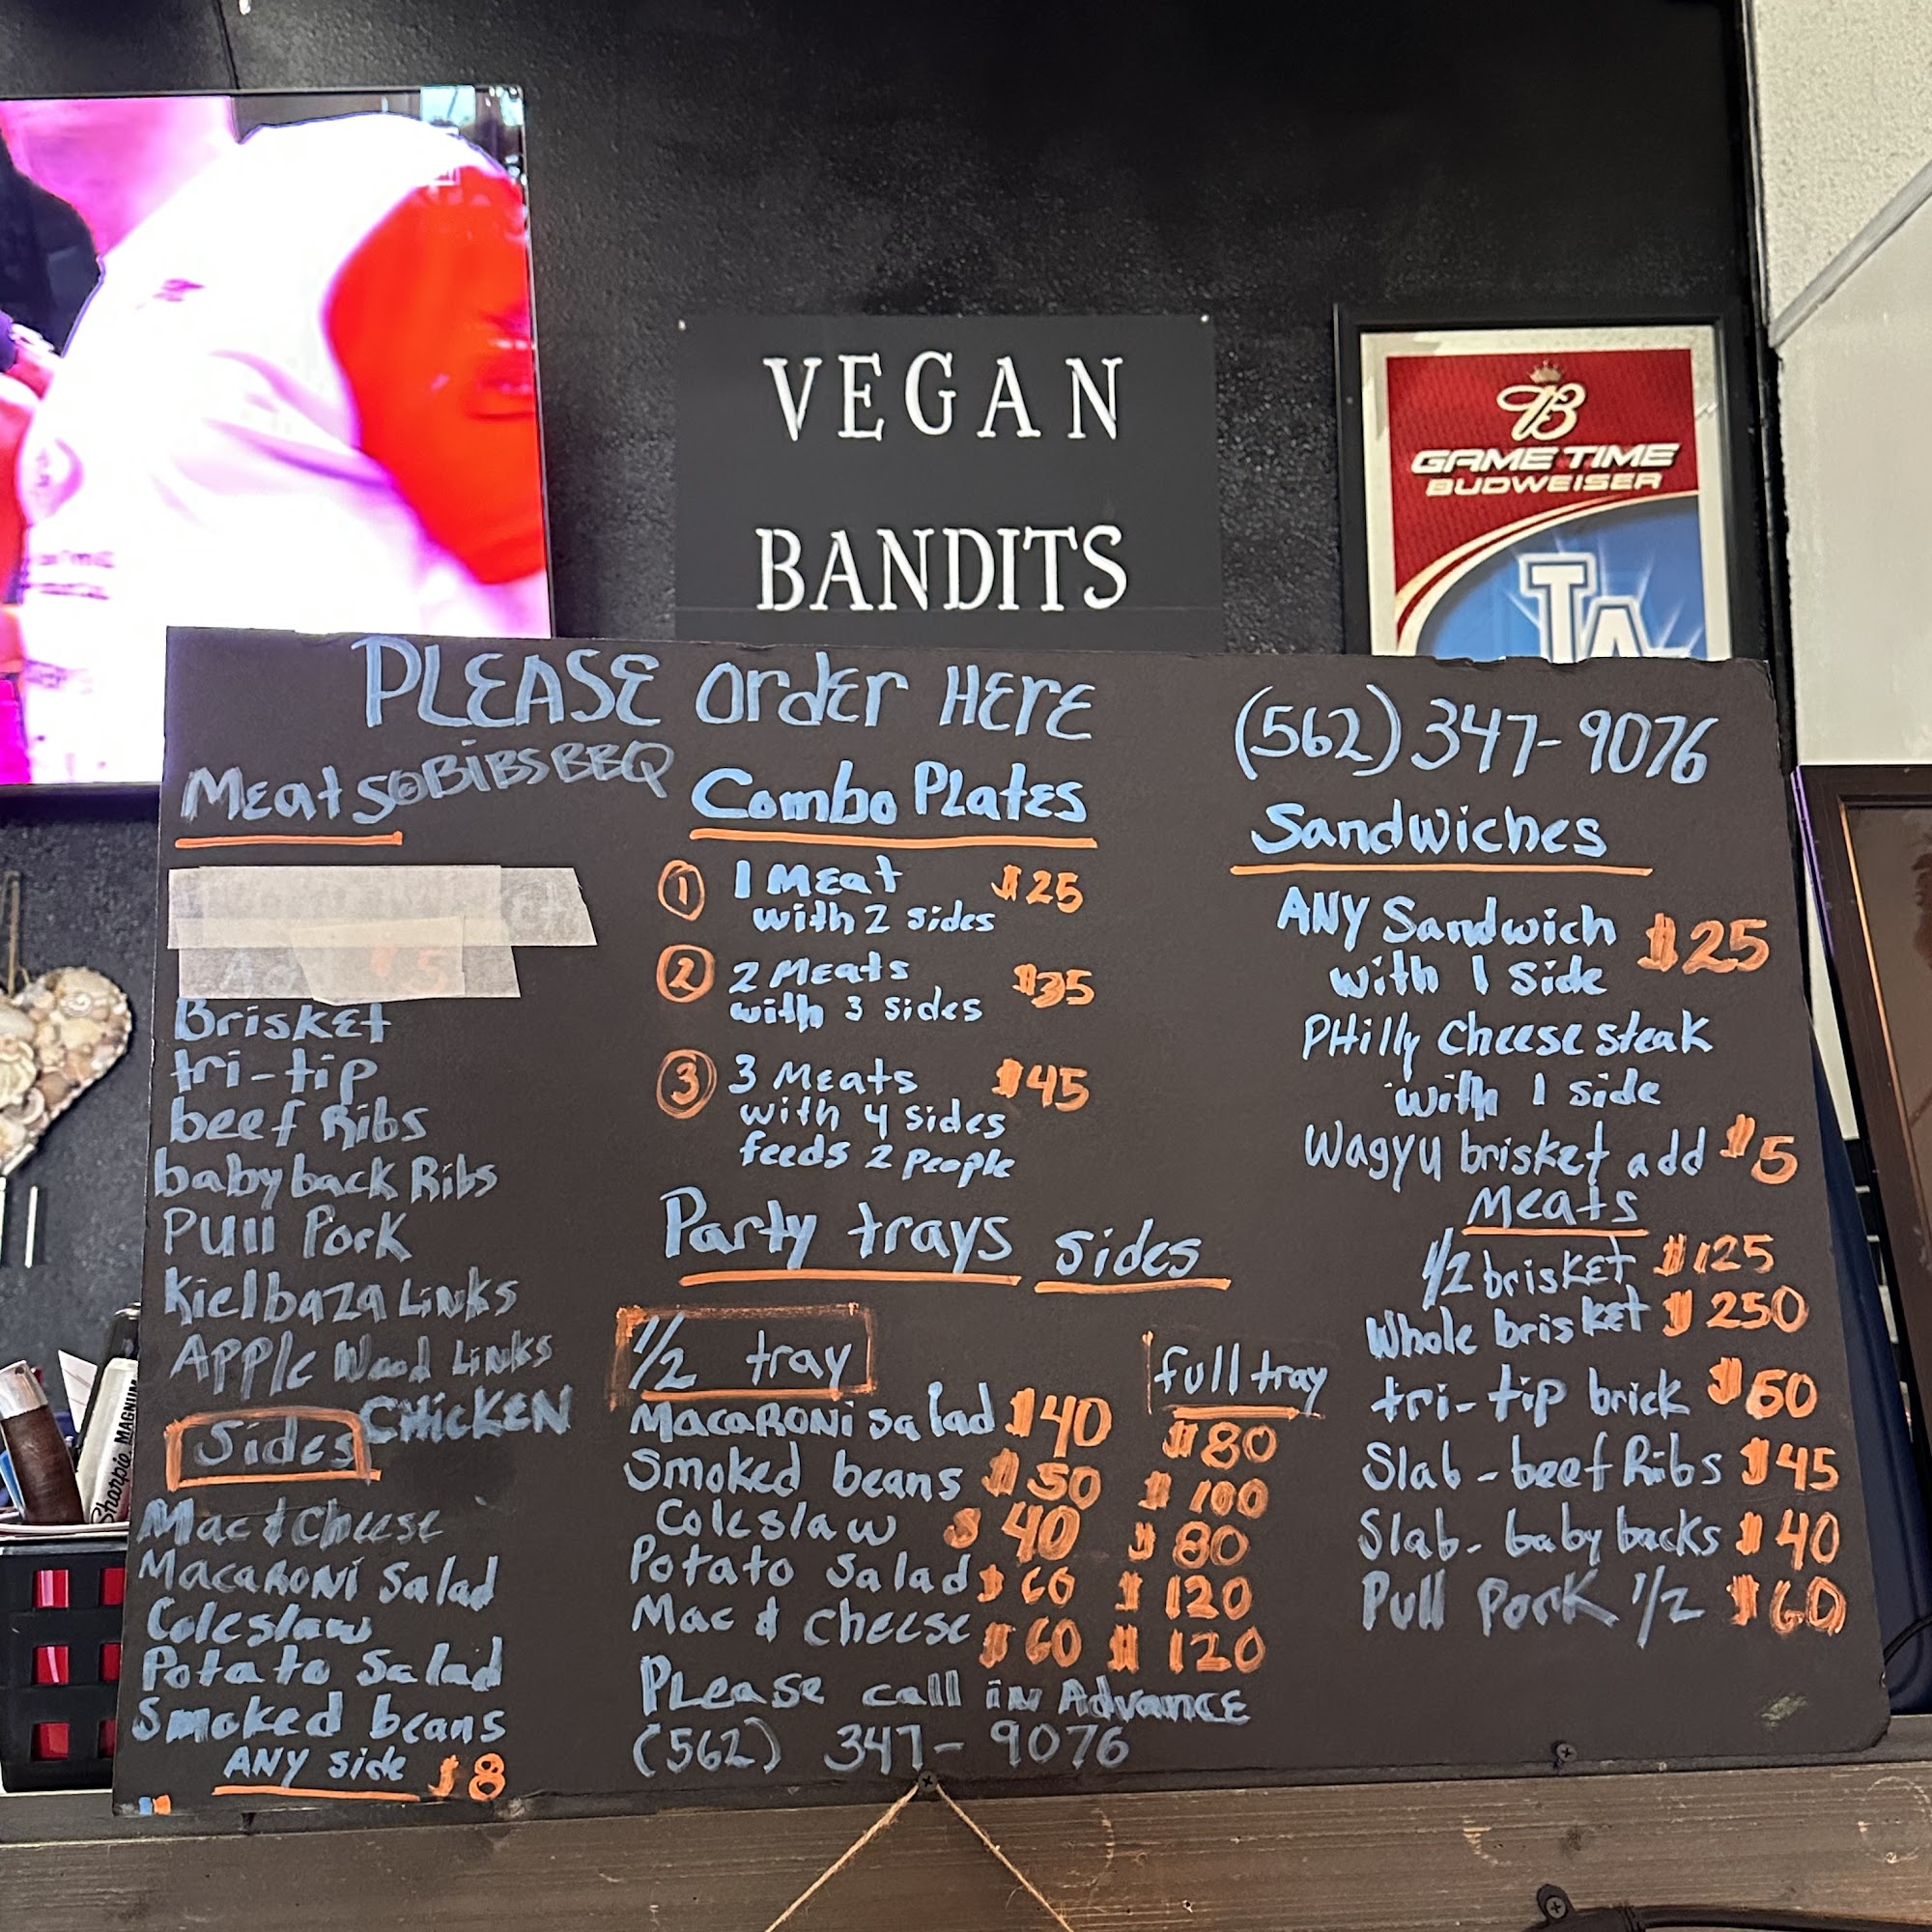 VEGAN
BANDITS
GAME TIME
BUDWEISER
LA
PLEASE Order HERE
(562) 347-9076
Meats @BiBSBBQ
Brisket
tri-tip
beef Ribs
baby back Ribs
Pull Pork
Kielbaza Links
Apple Wood Links
CHICKEN
Sides
Mac & Cheese
Macaroni Salad
Coleslaw
Potato Salad
Smoked beans
ANY side $8
Combo Plates
① 1 Meat $25
with 2 sides
② 2 Meats $35
with 3 sides
③ 3 Meats $45
with 4 sides
feeds 2 people
Party trays sides
1/2 tray full tray
Macaroni salad $40 $80
Smoked beans $50 $100
Coleslaw $40 $80
Potato Salad $60 $120
Mac & cheese $60 $120
Please call in Advance
(562) 347-9076
Sandwiches
ANY Sandwich $25
with 1 side
PHilly cheese steak
with 1 side
Wagyu brisket add $5
Meats
1/2 brisket $125
Whole brisket $250
tri-tip brick $60
Slab-beef Ribs $45
Slab-baby backs $40
Pull Pork 1/2 $60
Sharpie MAGNUM